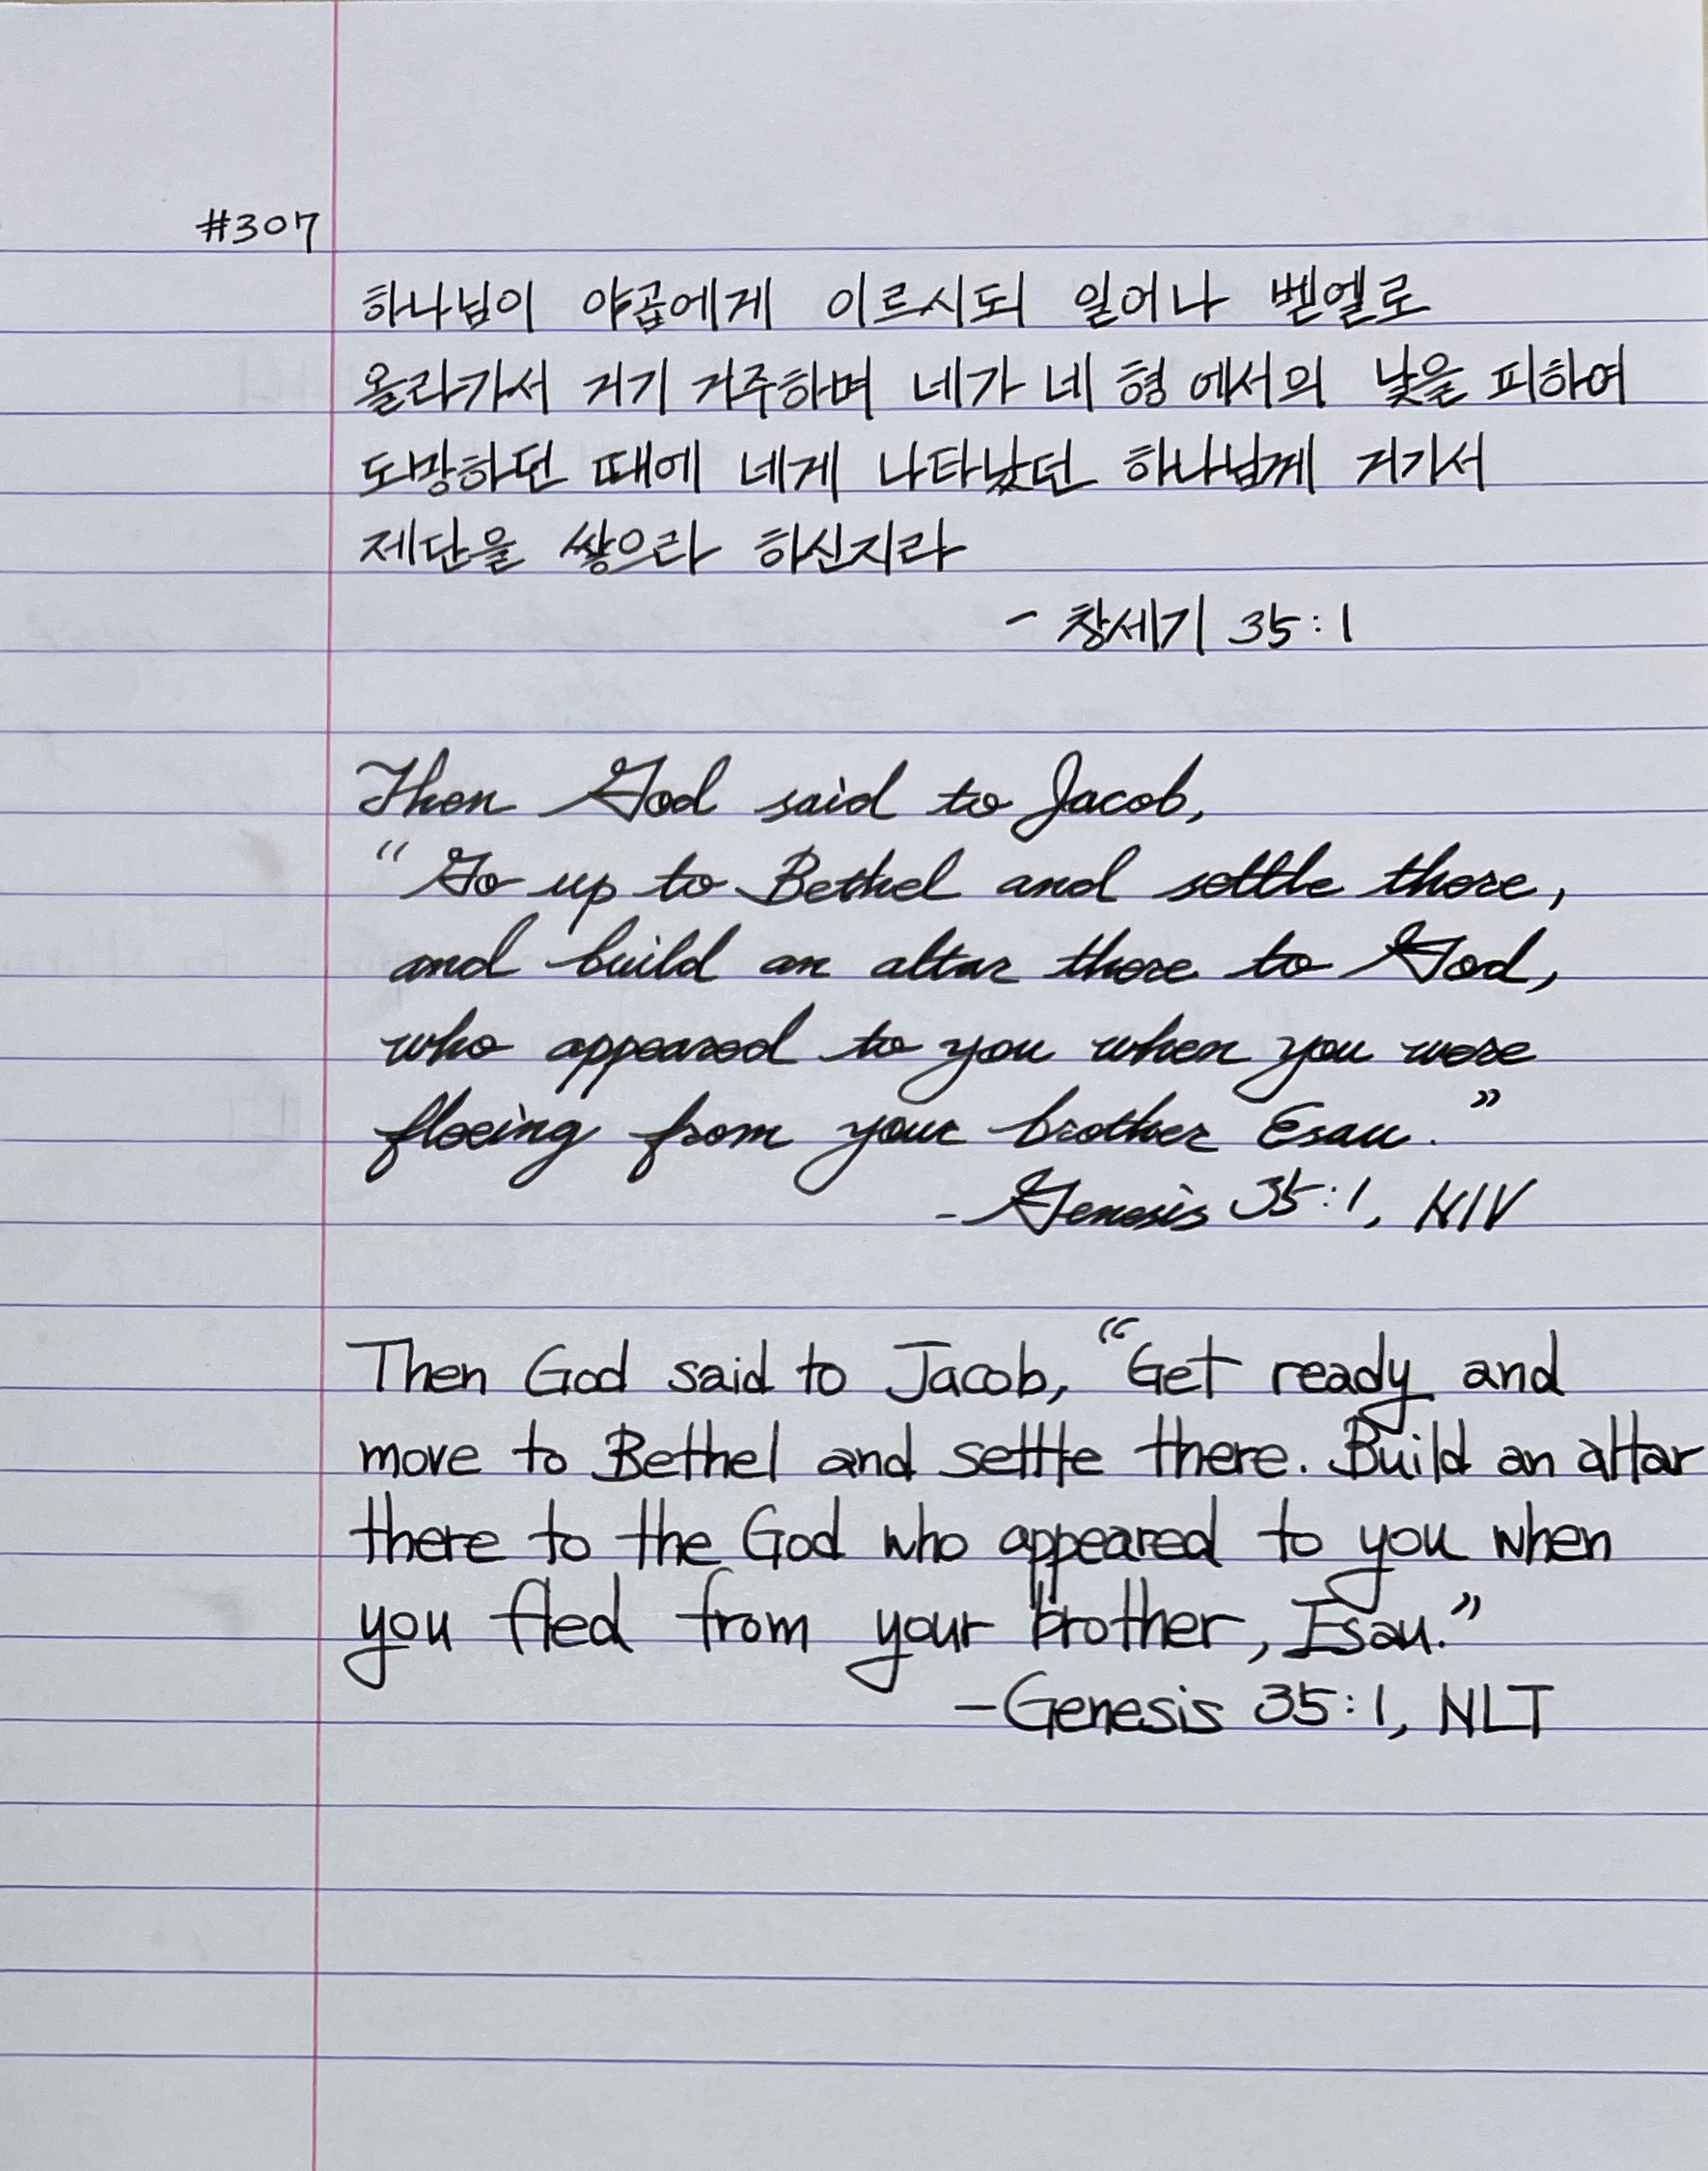 #307
하나님이 야곱에게 이르시되 일어나 벧엘로
올라가서 거기 거주하며 네가 네 형 에서의 낯을 피하여
도망하던 때에 네게 나타났던 하나님께 거기서
제단을 쌓으라 하신지라
- 창세기 35:1
Then God said to Jacob,
“Go up to Bethel and settle there,
and build an altar there to God,
who appeared to you when you were
fleeing from your brother Esau.”
- Genesis 35:1, NIV
Then God said to Jacob, “Get ready and
move to Bethel and settle there. Build an altar
there to the God who appeared to you when
you fled from your brother, Esau.”
- Genesis 35:1, NLT